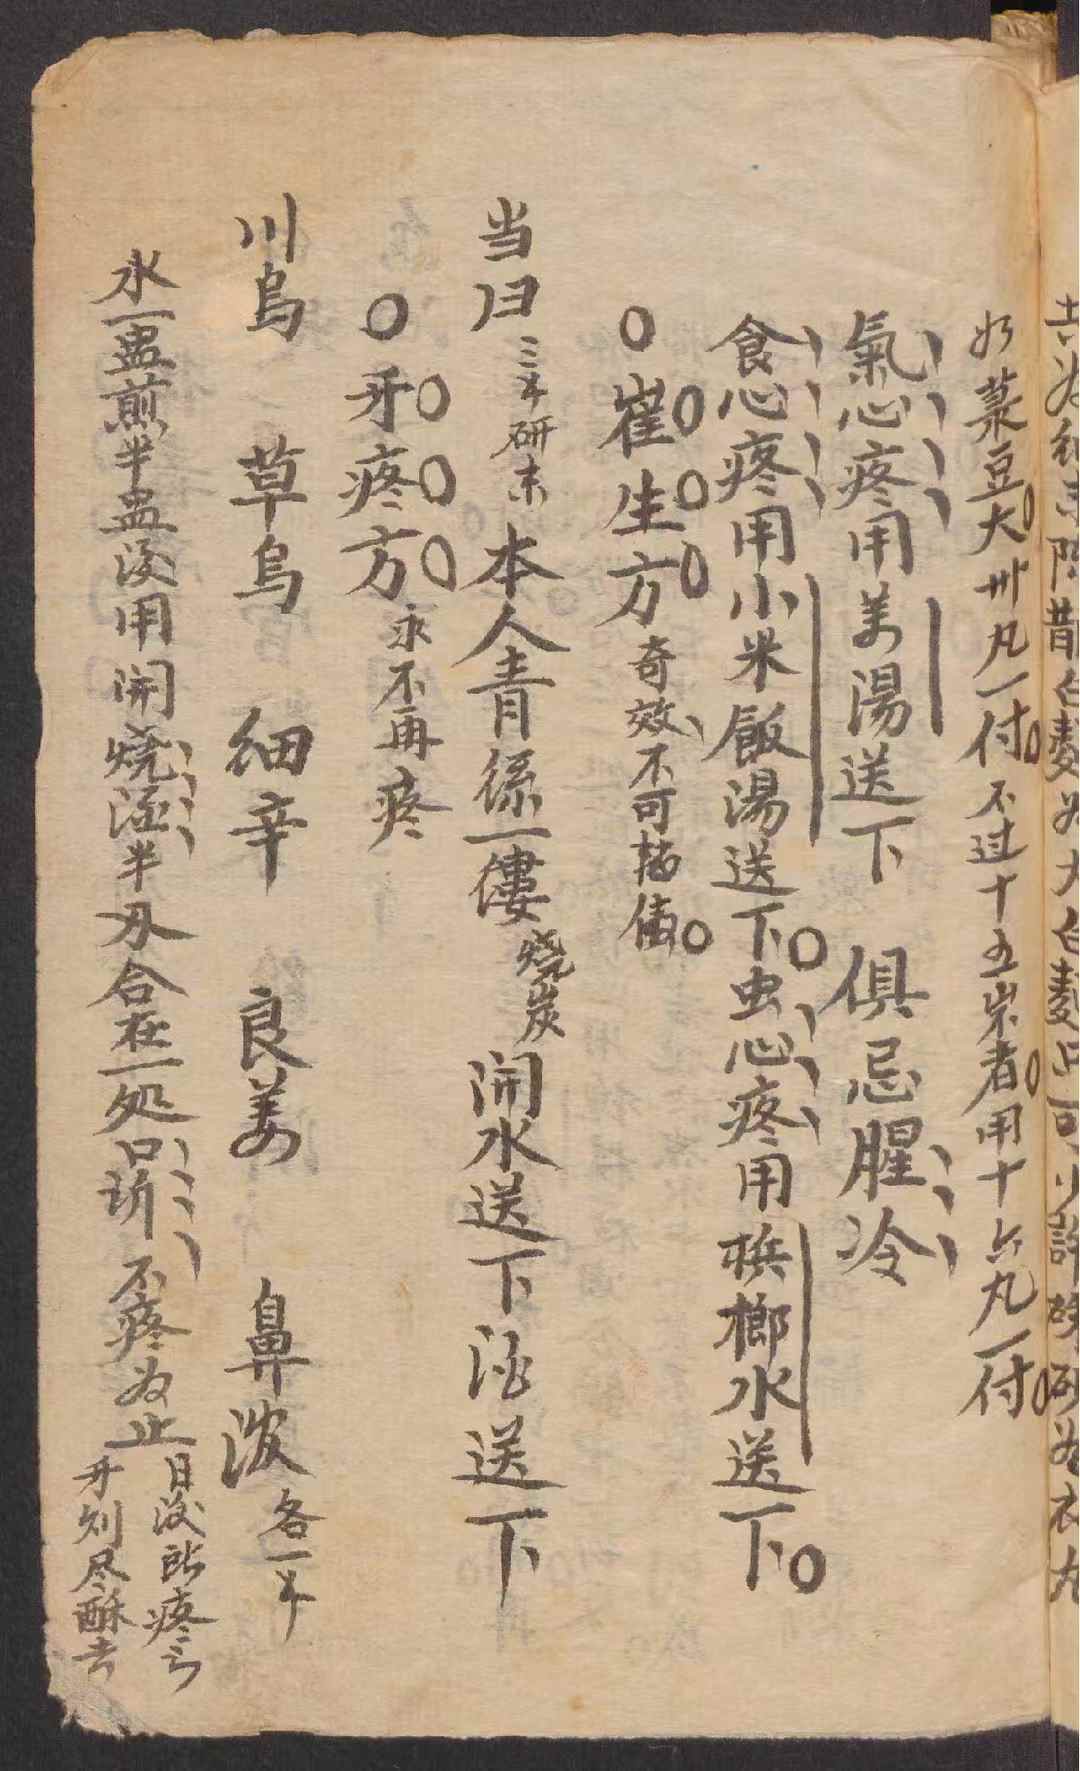 共为细末陈醋白麦为大白麦
如菉豆大卅丸一付不过十五岁者用十六丸一付
氣心疼用姜湯送下 俱忌腥冷
食心疼用小米飯湯送下虫心疼用梹榔水送下
崔生方 奇效不可
当归 三本研末 本人青絲一僂 烧炭 開水送下酒送下
牙疼方 永不再疼
川烏 草烏 细辛 良姜 鼻 各一
水一盅煎半盅後用開烧酒半 合在一処口 不疼为止
日後所疼之
牙 尽酥去